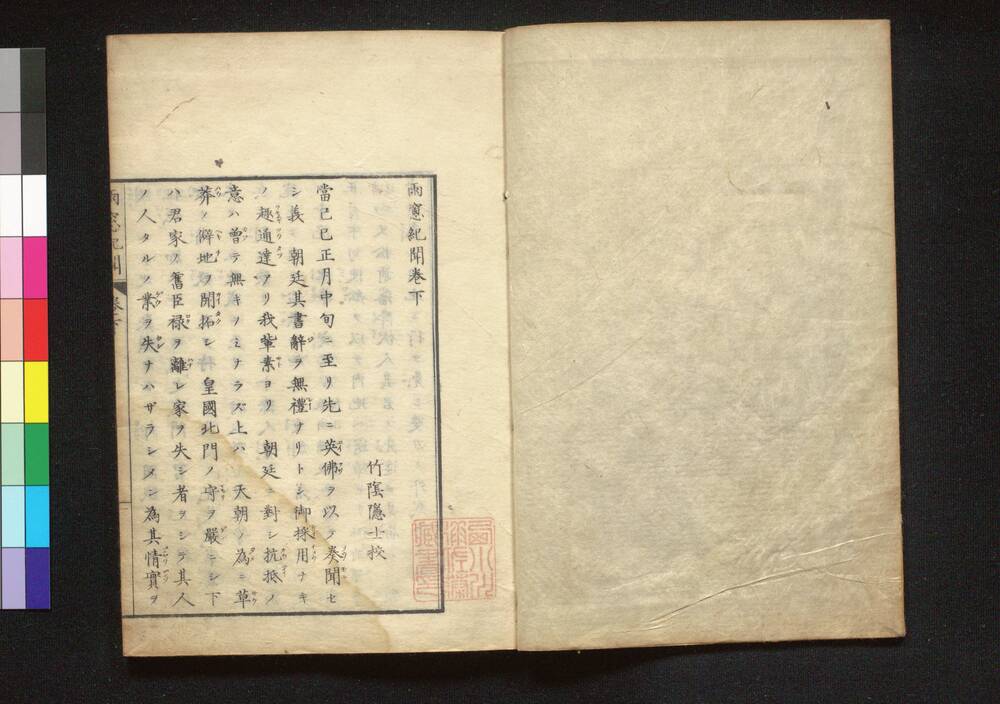 雨窓紀聞巻下
竹蔭隠士挍
當己巳正月中旬ニ至リ先ニ英佛ヲ以テ奏聞セ
シ義 朝廷其書辭ヲ無禮ナリトシ御採用ナキ
ノ趣通達アリ我輩素ヨリ 朝廷ニ對シ抗抵ノ
意ハ曽テ無キノミナラズ上ハ 天朝ノ為ニ草
莽ノ僻地ヲ開拓シ 皇國北門ノ守ヲ嚴ニシ下
ハ君家ノ舊臣禄ヲ離レ家ヲ失シ者ヲシテ其人
ノ人タルノ業ヲ失ナハザラシメン為其情實ヲ
雨窓紀聞